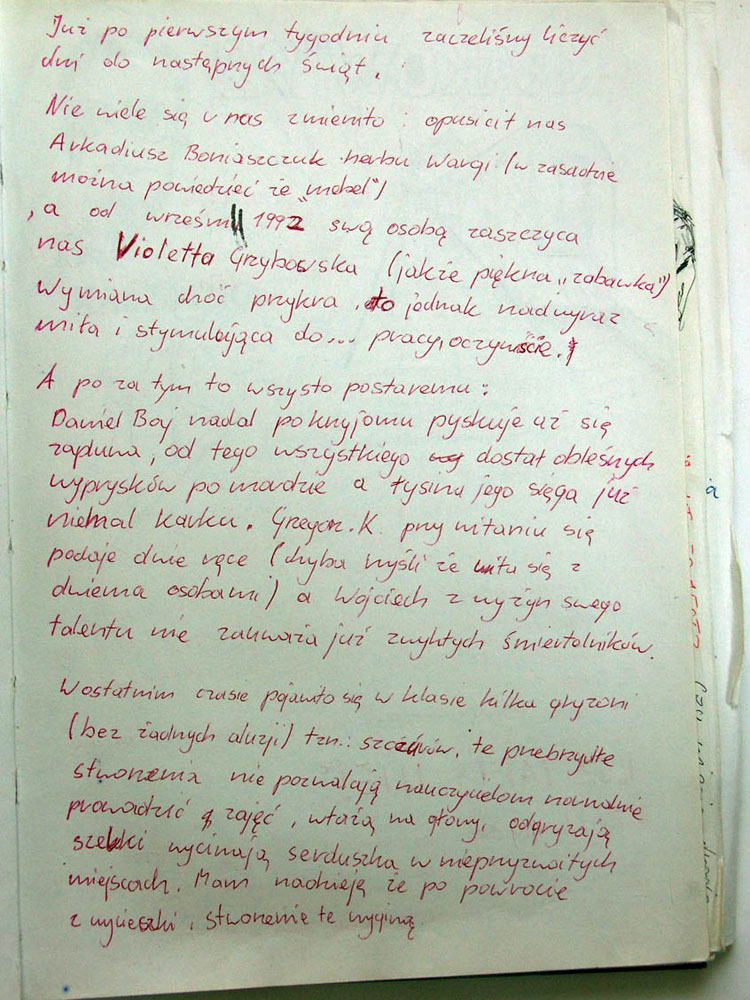 Już po pierwszym tygodniu zaczeliśmy liczyć
dni do następnych świąt.
Nie wiele się u nas zmieniło : opuścił nas
Arkadiusz Boniaszczuk herbu Wargi (w zasadzie
można powiedzieć że "mebel")
, a od wrześni 1992 swą osobą zaszczyca
nas Violetta Grzybowska (jakże piękna „zabawka")
Wymiana choć przykra, to jednak nadwyraz
miła i stymulująca do... pracy, oczywiście.
A po za tym to wszysto postaremu :
Daniel Boj nadal po kryjomu pyskuje aż się
zapluwa, od tego wszystkiego dostał obleśnych
wyprysków po mordzie a łysina jego sięga już
niemal karku. Gregor. K. przy witaniu się
podaje dwie ręce (chyba myśli że wita się z
dwiema osobami) a Wojciech z wyżyn swego
talentu nie zauważa już zwykłych śmiertelników.
W ostatnim czasie pojawiło się w klasie kilka gryzoni
(bez żadnych aluzji) tzn.: szczurów, te przebrzydłe
stworzenia nie pozwalają nauczycielom normalnie
prowadzić zajęć, włażą na głowy, odgryzają
szelki wycinają serduszka w nieprzyzwoitych
miejscach. Mam nadzieję że po powrocie
z wycieszki, stworzenie te wyginą.